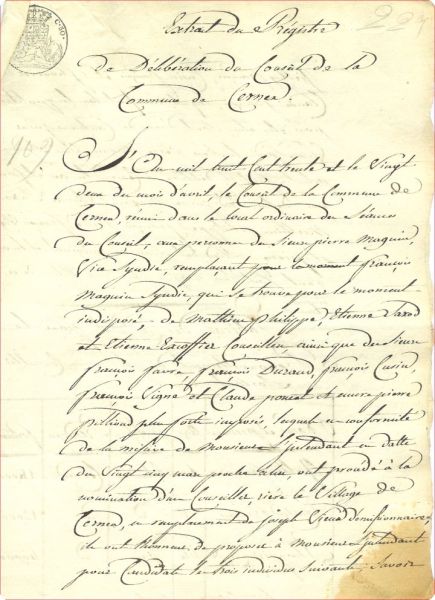 227
C. 50
Extrait du Régistre
de Délibération du Conseil de la
Commune de Cernex.
109
L'an mil huit cent trente et le vingt
deux du mois d'avril, le Conseil de la Commune de
Cernex, réuni dans le lieu ordinaire des séances
du Conseil, aux personnes du Sieur pierre Maguin,
Vice Syndic, remplaçant pour le moment françois
Maguin Syndic, qui se trouve pour le moment
indisposé, de Mathieu philippe, Etienne
et Etienne Excoffier Conseillers, ainsi que des Sieurs
françois favre françois Durand, françois Cusin,
françois Vigne et Claude poncet et pierre
pilliard plus forts imposés, lesquels en conformité
de la missive de Monsieur L'intendant en datte
du vingt cinq mars proche échu, ont procédé à la
nomination d'un Conseiller, rière le Village de
Cernex, en remplacement de joseph démissionnaire,
et ont l'honneur, de proposer à Monsieur L'intendant
pour Candidats les trois individus suivants; Savoir